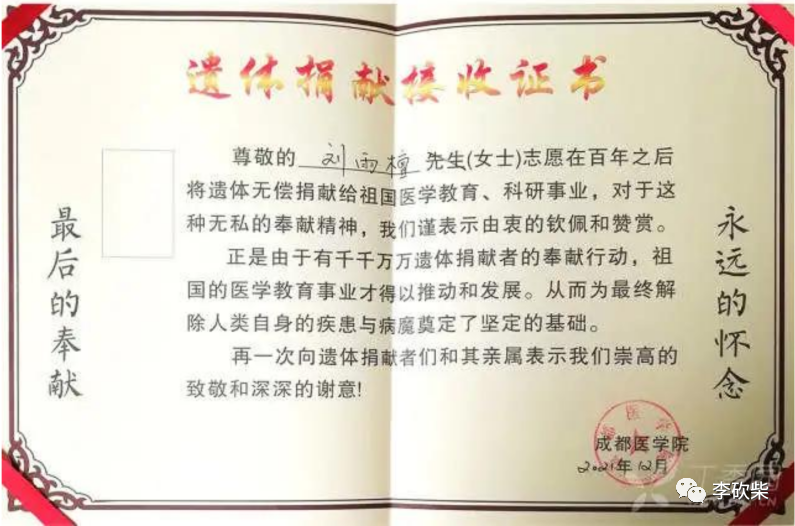 遗体捐献接收证书
尊敬的 刘雨檀 先生(女士)志愿在百年之后
将遗体无偿捐献给祖国医学教育、科研事业，对于这
种无私的奉献精神，我们谨表示由衷的钦佩和赞赏。
正是由于有千千万万遗体捐献者的奉献行动，祖
国的医学教育事业才得以推动和发展。从而为最终解
除人类自身的疾患与病魔奠定了坚定的基础。
再一次向遗体捐献者们和其亲属表示我们崇高的
致敬和深深的谢意!
最后的奉献
永远的怀念
成都医学院
2021年12月
李砍柴